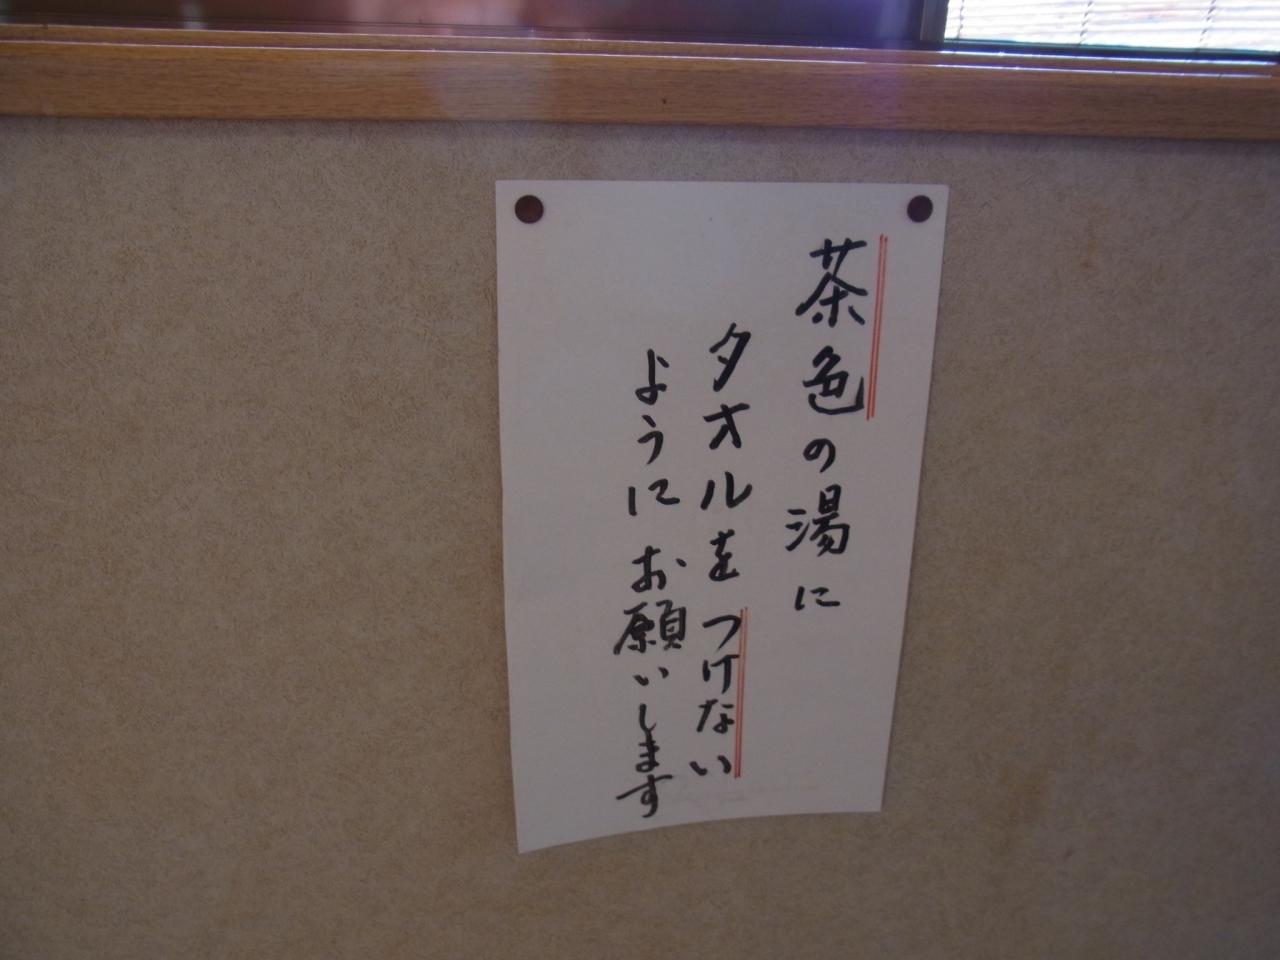 茶色の湯に
タオルをつけない
ように お願いします